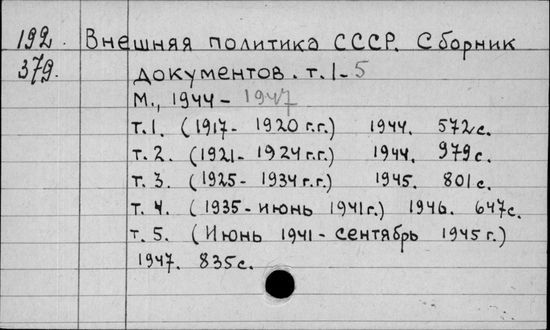 192. Внешняя политика СССР. Сборник
379. документов. т. 1-5
М., 1944 - 1947
т. 1. (1917- 1920 г.г.) 1944. 572 с.
т. 2. (1921- 1924 г.г.) 1944. 979 с.
т. 3. (1925- 1934 г.г.) 1945. 801 с.
т. 4. (1935-июнь 1941 г.) 1946. 647 с.
т. 5. (Июнь 1941- сентябрь 1945 г.)
1947. 835 с.